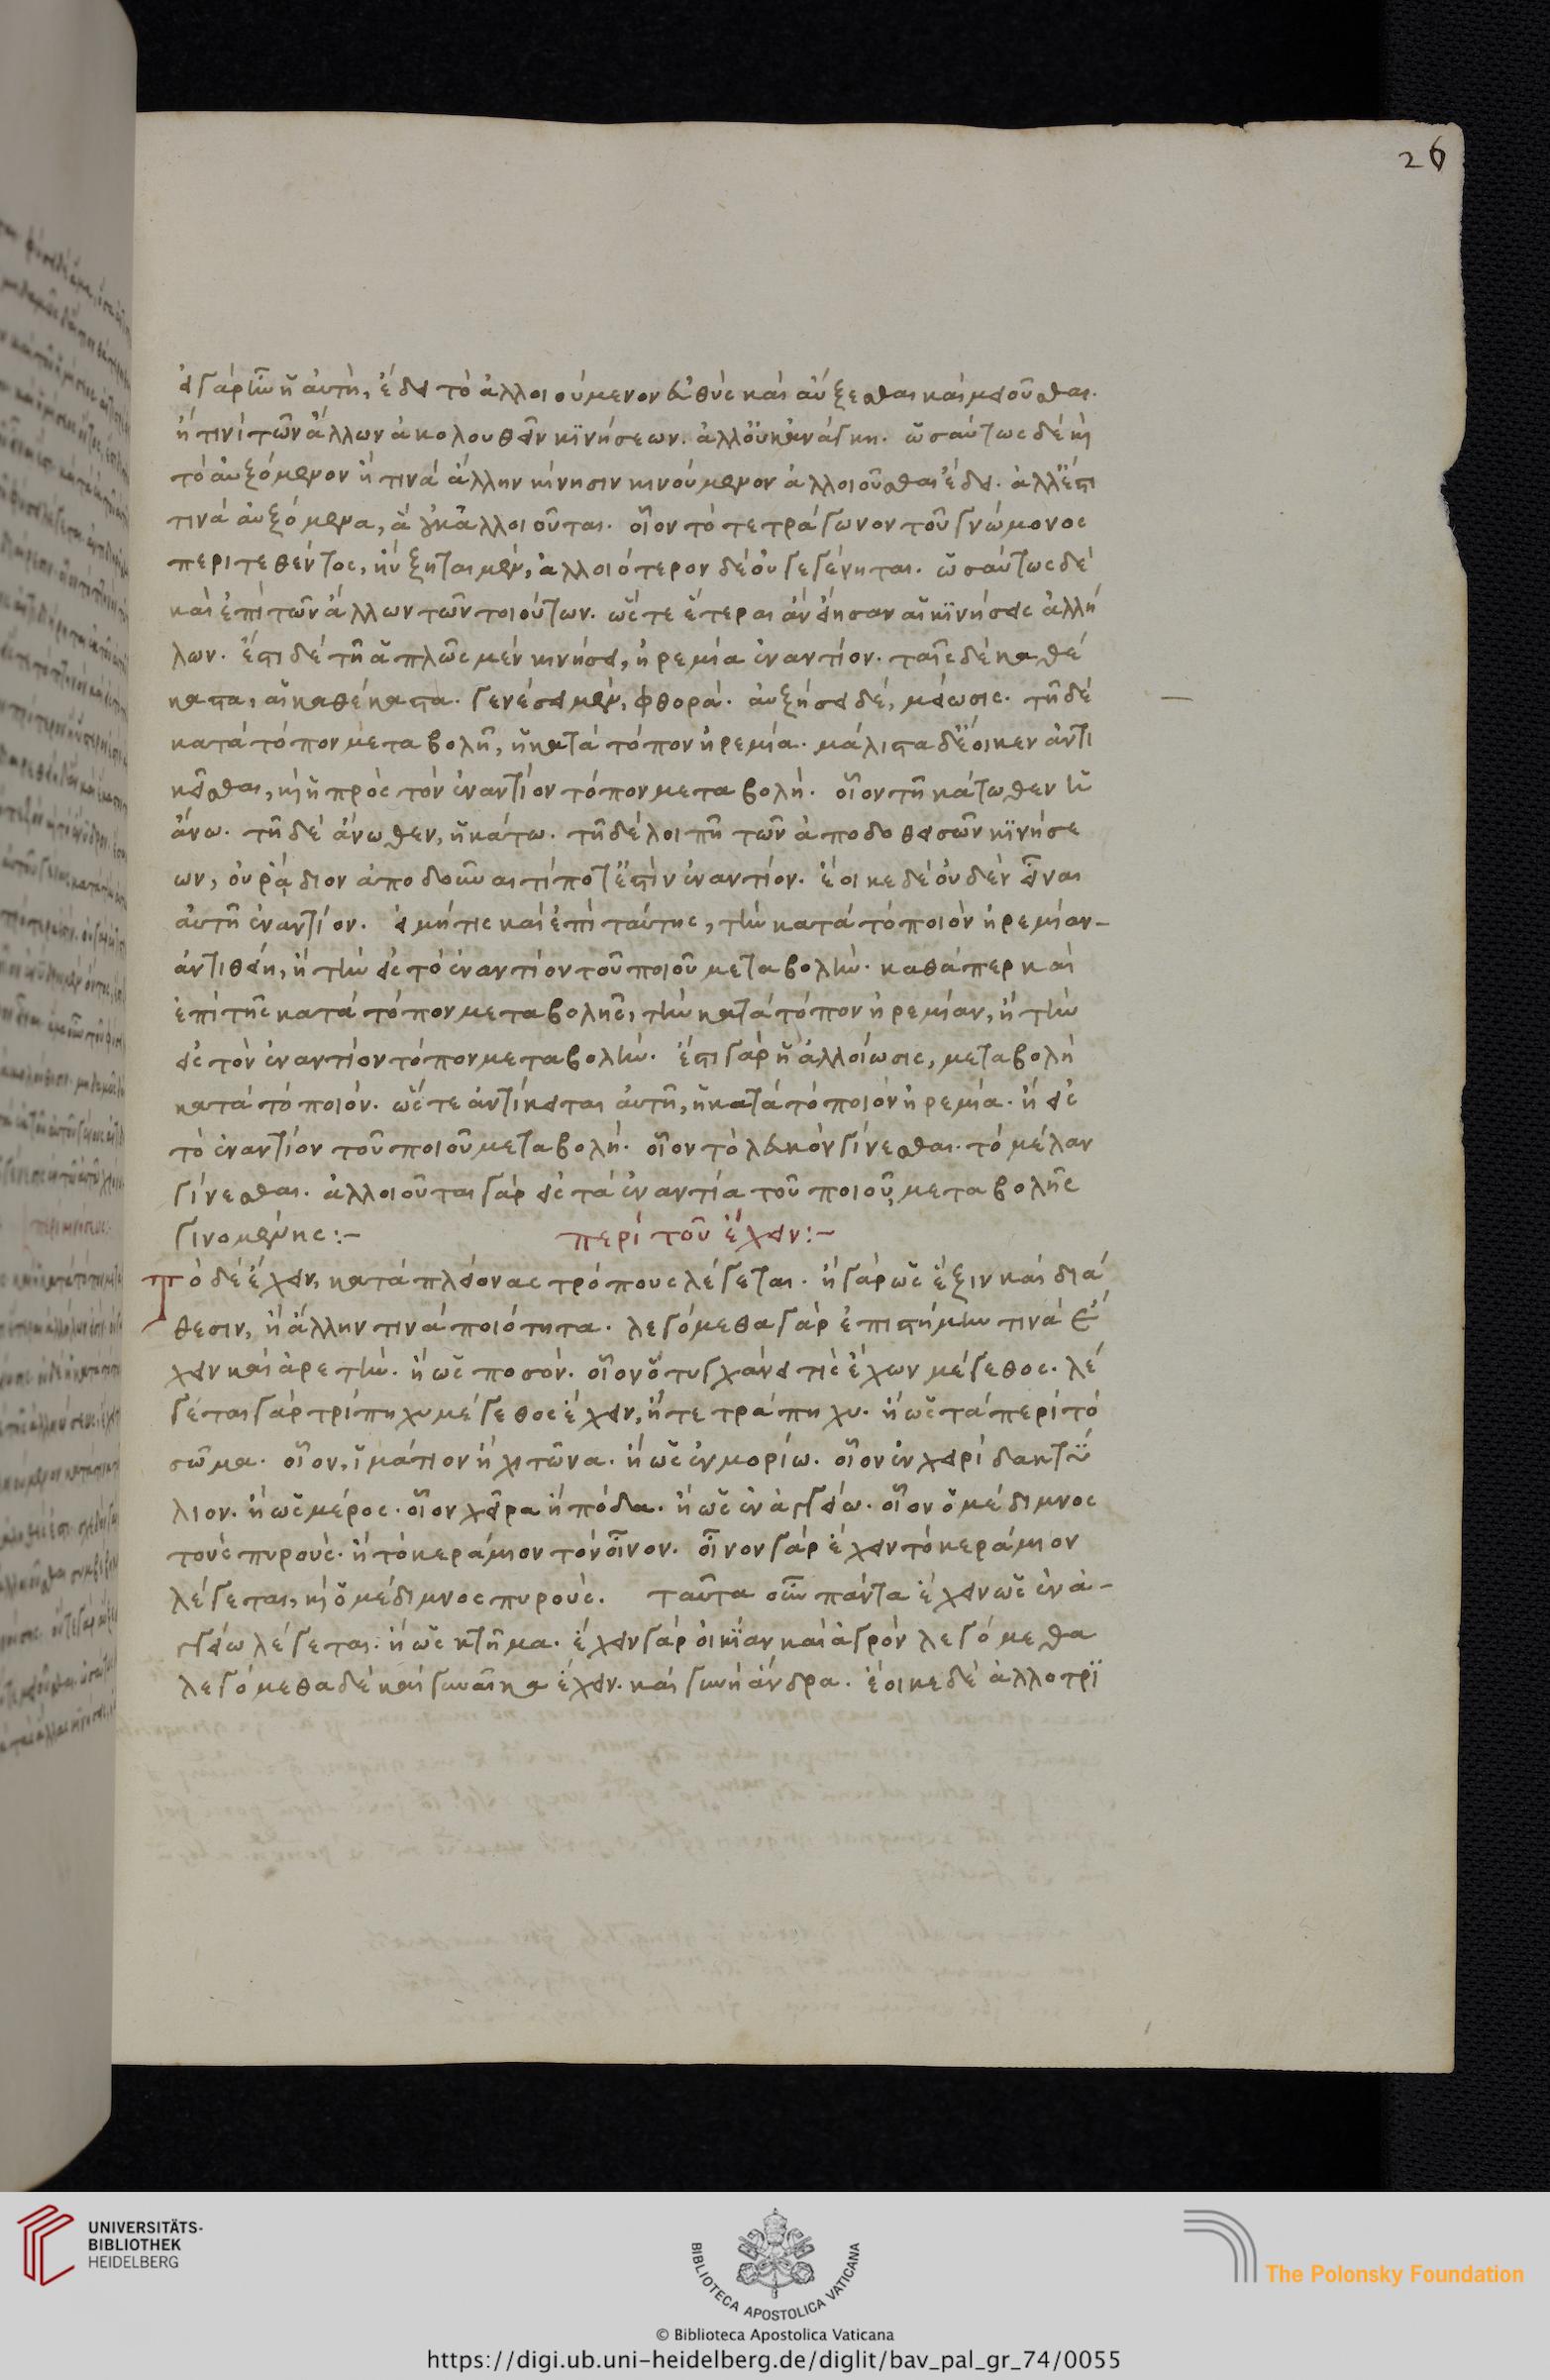 26
εἰ γὰρ ἦν ἡ αὐτὴ, ἔδει τὸ ἀλλοιούμενον εὐθὺς καὶ αὔξεσθαι καὶ μειοῦσθαι.
ἤ τινι τῶν ἄλλων ἀκολουθεῖν κϊνήσεων. ἀλλ' οὐκ ἀνάγκη. ὡσαύτως δὲ καὶ
τὸ αὐξόμενον ἤ τινα ἄλλην κίνησιν κινούμενον ἀλλοιοῦσθαι ἔδει. ἀλλ' ἔστι
τινὰ αὐξόμενα, ἃ οὐκ ἀλλοιοῦται. οἷον τὸ τετράγωνον τοῦ γνώμονος
περιτεθέντος, ηὔξηται μὲν, ἀλλοιότερον δὲ οὐ γεγένηται. ὡσαύτως δὲ
καὶ ἐπὶ τῶν ἄλλων τῶν τοιούτων. ὥστε ἕτεραι ἂν εἴησαν αἱ κϊνήσεις ἀλλή
λων. ἔστι δὲ τῇ ἁπλῶς μὲν κινήσει, ἠρεμία ἐναντίον. ταῖς δὲ καθέ
καστα, αἱ καθέκαστα. γενέσει μὲν, φθορά. αὐξήσει δὲ, μείωσις. τῇ δὲ
κατὰ τόπον μεταβολῇ, ἡ κατὰ τόπον ἠρεμία. μάλιστα δ' ἔοικεν ἀντι
κεῖσθαι, καὶ ἡ πρὸς τὸν ἐναντίον τόπον μεταβολή. οἷον τῇ κάτωθεν ἡ
ἄνω. τῇ δὲ ἄνωθεν, ἡ κάτω. τῇ δὲ λοιπῇ τῶν ἀποδοθεισῶν κϊνήσε
ων, οὐ ῥᾴδιον ἀποδοῦναι τί ποτ' ἐστὶν ἐναντίον. ἔοικε δὲ οὐδὲν εἶναι
αὐτῇ ἐναντίον. εἰ μή τις καὶ ἐπὶ ταύτης, τὴν κατὰ τὸ ποιὸν ἠρεμίαν-
ἀντιθείη, ἢ τὴν εἰς τὸ ἐναντίον τοῦ ποιοῦ μεταβολήν. καθάπερ καὶ
ἐπὶ τῆς κατὰ τόπον μεταβολῆς, τὴν κατὰ τόπον ἠρεμίαν, ἢ τὴν
εἰς τὸν ἐναντίον τόπον μεταβολήν. ἔστι γὰρ ἡ ἀλλοίωσις, μεταβολὴ
κατὰ τὸ ποιόν. ὥστε ἀντίκειται αὐτῇ, ἡ κατὰ τὸ ποιὸν ἠρεμία. ἢ εἰς
τὸ ἐναντίον τοῦ ποιοῦ μεταβολή. οἷον τὸ λευκὸν γίνεσθαι. τὸ μέλαν
γίνεσθαι. ἀλλοιοῦται γὰρ εἰς τὰ ἐναντία τοῦ ποιοῦ, μεταβολῆς
γινομένης:- περὶ τοῦ ἔχειν:-
Τὸ δὲ ἔχειν, κατὰ πλείονας τρόπους λέγεται. ἢ γὰρ ὡς ἕξιν καὶ διά
θεσιν, ἢ ἄλλην τινὰ ποιότητα. λεγόμεθα γὰρ ἐπιστήμην τινὰ ἔ
χειν καὶ ἀρετήν. ἢ ὡς ποσόν. οἷον ὃ τυγχάνει τις ἔχων μέγεθος. λέ
γεται γὰρ τρίπηχυ μέγεθος ἔχειν, ἢ τετράπηχυ. ἢ ὡς τὰ περὶ τὸ
σῶμα. οἷον, ἱμάτιον ἢ χιτῶνα. ἢ ὡς ἐν μορίω. οἷον ἐν χειρὶ δακτύ
λιον. ἢ ὡς μέρος. οἷον χεῖρα ἢ πόδα. ἢ ὡς ἐν ἀγγείω. οἷον ὁ μέδιμνος
τοὺς πυρούς. ἢ τὸ κεράμιον τὸν οἶνον. οἶνον γὰρ ἔχειν τὸ κεράμιον
λέγεται, καὶ ὁ μέδιμνος πυρούς. ταῦτα οὖν πάντα ἔχειν ὡς ἐν ἀ-
γγείω λέγεται. ἢ ὡς κτῆμα. ἔχειν γὰρ οἰκΐαν καὶ ἀγρὸν λεγόμεθα
λεγόμεθα δὲ καὶ γυναῖκα ἔχειν. καὶ γυνὴ ἄνδρα. ἔοικε δὲ ἀλλοτρϊ
UNIVERSITÄTS-
BIBLIOTHEK
HEIDELBERG
BIBLIOTECA APOSTOLICA VATICANA
The Polonsky Foundation
© Biblioteca Apostolica Vaticana
https://digi.ub.uni-heidelberg.de/diglit/bav_pal_gr_74/0055